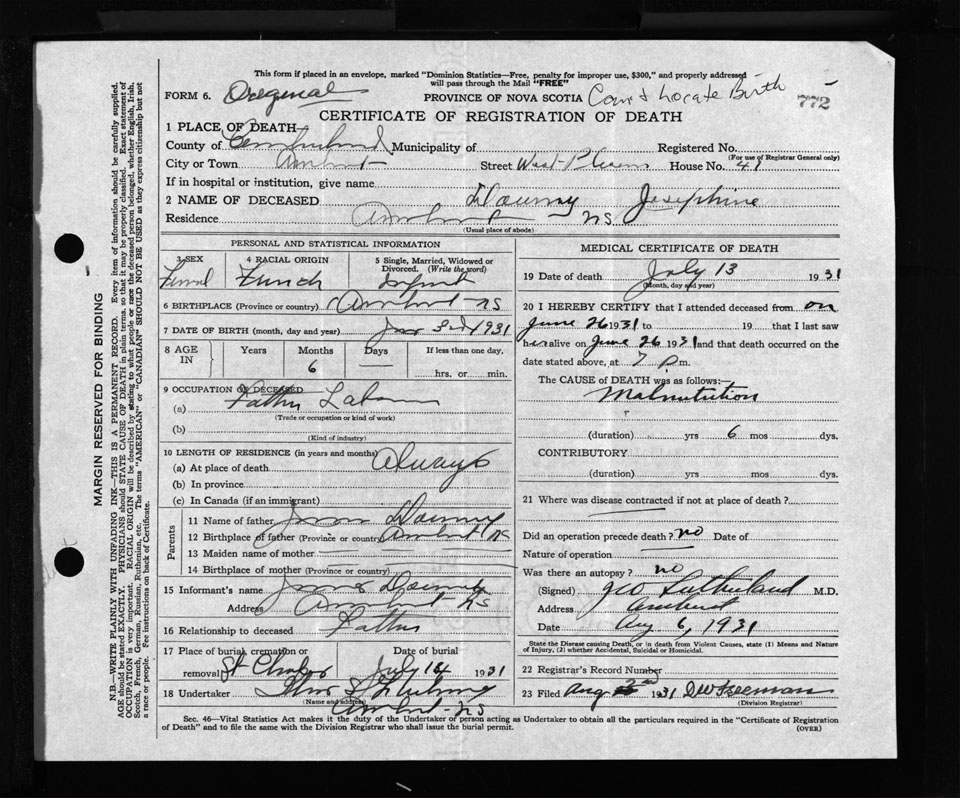 This form if placed in an envelope, marked "Dominion Statistics—Free, penalty for improper use, $300," and properly addressed
will pass through the Mail "FREE"
FORM 6. Original
PROVINCE OF NOVA SCOTIA Can't Locate Birth 772
CERTIFICATE OF REGISTRATION OF DEATH
1 PLACE OF DEATH—
County of Cumberland Municipality of Registered No.
(For use of Registrar General only)
City or Town Amherst Street West House No. 41
If in hospital or institution, give name
2 NAME OF DECEASED Josephine
Residence Amherst NS
(Usual place of abode)
PERSONAL AND STATISTICAL INFORMATION
3 SEX 4 RACIAL ORIGIN 5 Single, Married, Widowed or
Divorced. (Write the word)
Femal French Infant
6 BIRTHPLACE (Province or country) Amherst NS
7 DATE OF BIRTH (month, day and year) 1931
8 AGE IN Years Months Days If less than one day,
6 — hrs. or min.
9 OCCUPATION OF DECEASED
(a) Father Labor
(Trade or occupation or kind of work)
(b)
(Kind of industry)
10 LENGTH OF RESIDENCE (in years and months)
(a) At place of death Always
(b) In province
(c) In Canada (if an immigrant)
Parents
11 Name of father
12 Birthplace of father (Province or country) Amherst NS
13 Maiden name of mother
14 Birthplace of mother (Province or country)
15 Informant's name
Address Amherst NS
16 Relationship to deceased Father
17 Place of burial, cremation or Date of burial
removal St July 14 1931
18 Undertaker
(Name and address)
Amherst NS
MEDICAL CERTIFICATE OF DEATH
19 Date of death July 13 1931
(Month, day and year)
20 I HEREBY CERTIFY that I attended deceased from on
June 26 1931 to 19 that I last saw
her alive on June 26 1931 and that death occurred on the
date stated above, at 7 p.m.
The CAUSE OF DEATH was as follows:—
Malnutrition
(duration) yrs 6 mos dys.
CONTRIBUTORY
(duration) yrs mos dys.
21 Where was disease contracted if not at place of death?
Did an operation precede death? no Date of
Nature of operation
Was there an autopsy? no
(Signed) Geo Sutherland M.D.
Address Amherst
Date Aug 6, 1931
State the Disease causing Death, or in death from Violent Causes, state (1) Means and Nature
of Injury, (2) whether Accidental, Suicidal or Homicidal.
22 Registrar's Record Number
23 Filed Aug 1931 DW Freeman
(Division Registrar)
Sec. 46—Vital Statistics Act makes it the duty of the Undertaker or person acting as Undertaker to obtain all the particulars required in the "Certificate of Registration
of Death" and to file the same with the Division Registrar who shall issue the burial permit. (OVER)
MARGIN RESERVED FOR BINDING
N.B.—WRITE PLAINLY WITH UNFADING INK—THIS IS A PERMANENT RECORD. Every item of information should be carefully supplied.
AGE should be stated EXACTLY. PHYSICIANS should STATE CAUSE OF DEATH in plain terms, so that it may be properly classified. Exact statement of
OCCUPATION is very important. RACIAL ORIGIN will be described by stating to what people or race the deceased person belonged, whether English, Irish,
Scotch, French, German, Russian, Ruthenian, etc. The terms "AMERICAN" or "CANADIAN" SHOULD NOT BE USED as they express citizenship but not
a race or people. See instructions on back of Certificate.